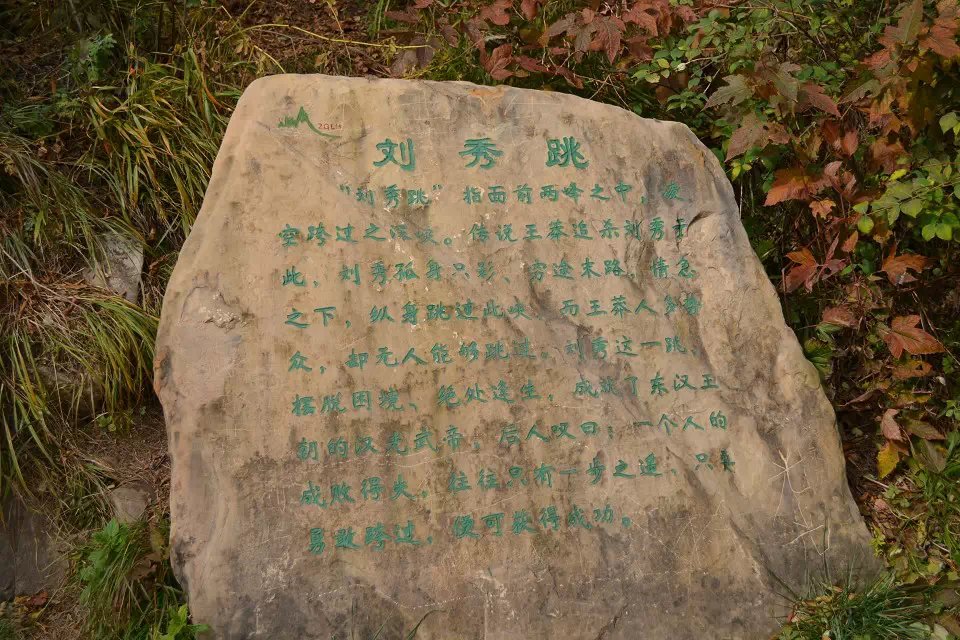 刘秀跳
“刘秀跳”指面前两峰之中,凌
空跨过之深峡。传说王莽追杀刘秀于
此,刘秀孤身只影、穷途末路,情急
之下,纵身跳过此峡,而王莽人多势
众,却无人能够跳过。刘秀这一跳,
摆脱困境、绝处逢生,成就了东汉王
朝的汉光武帝,后人叹曰:一个人的
成败得失,往往只有一步之遥,只要
勇敢跨过,便可获得成功。